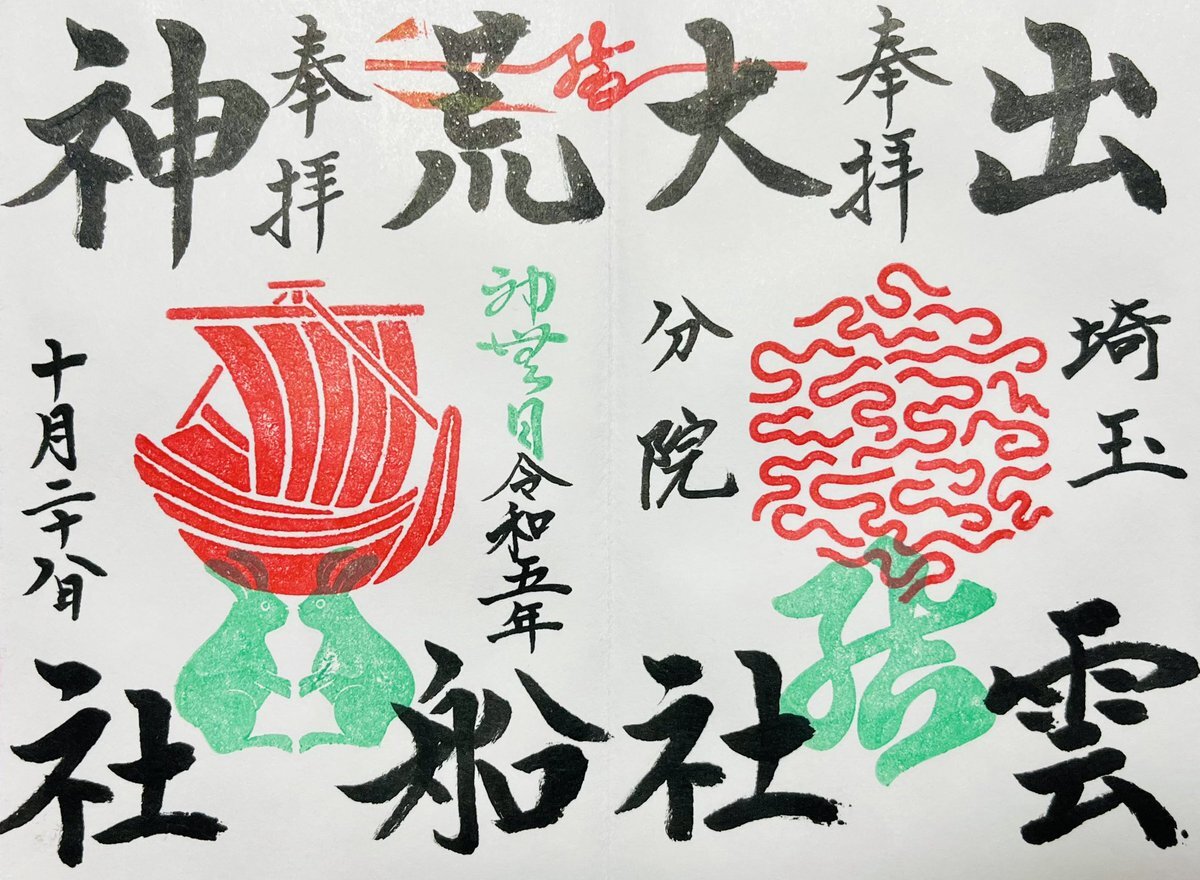 奉拝
出雲
大社
埼玉
分院
結
結
奉拝
荒船
神社
神無月
令和五年
十月二十八日